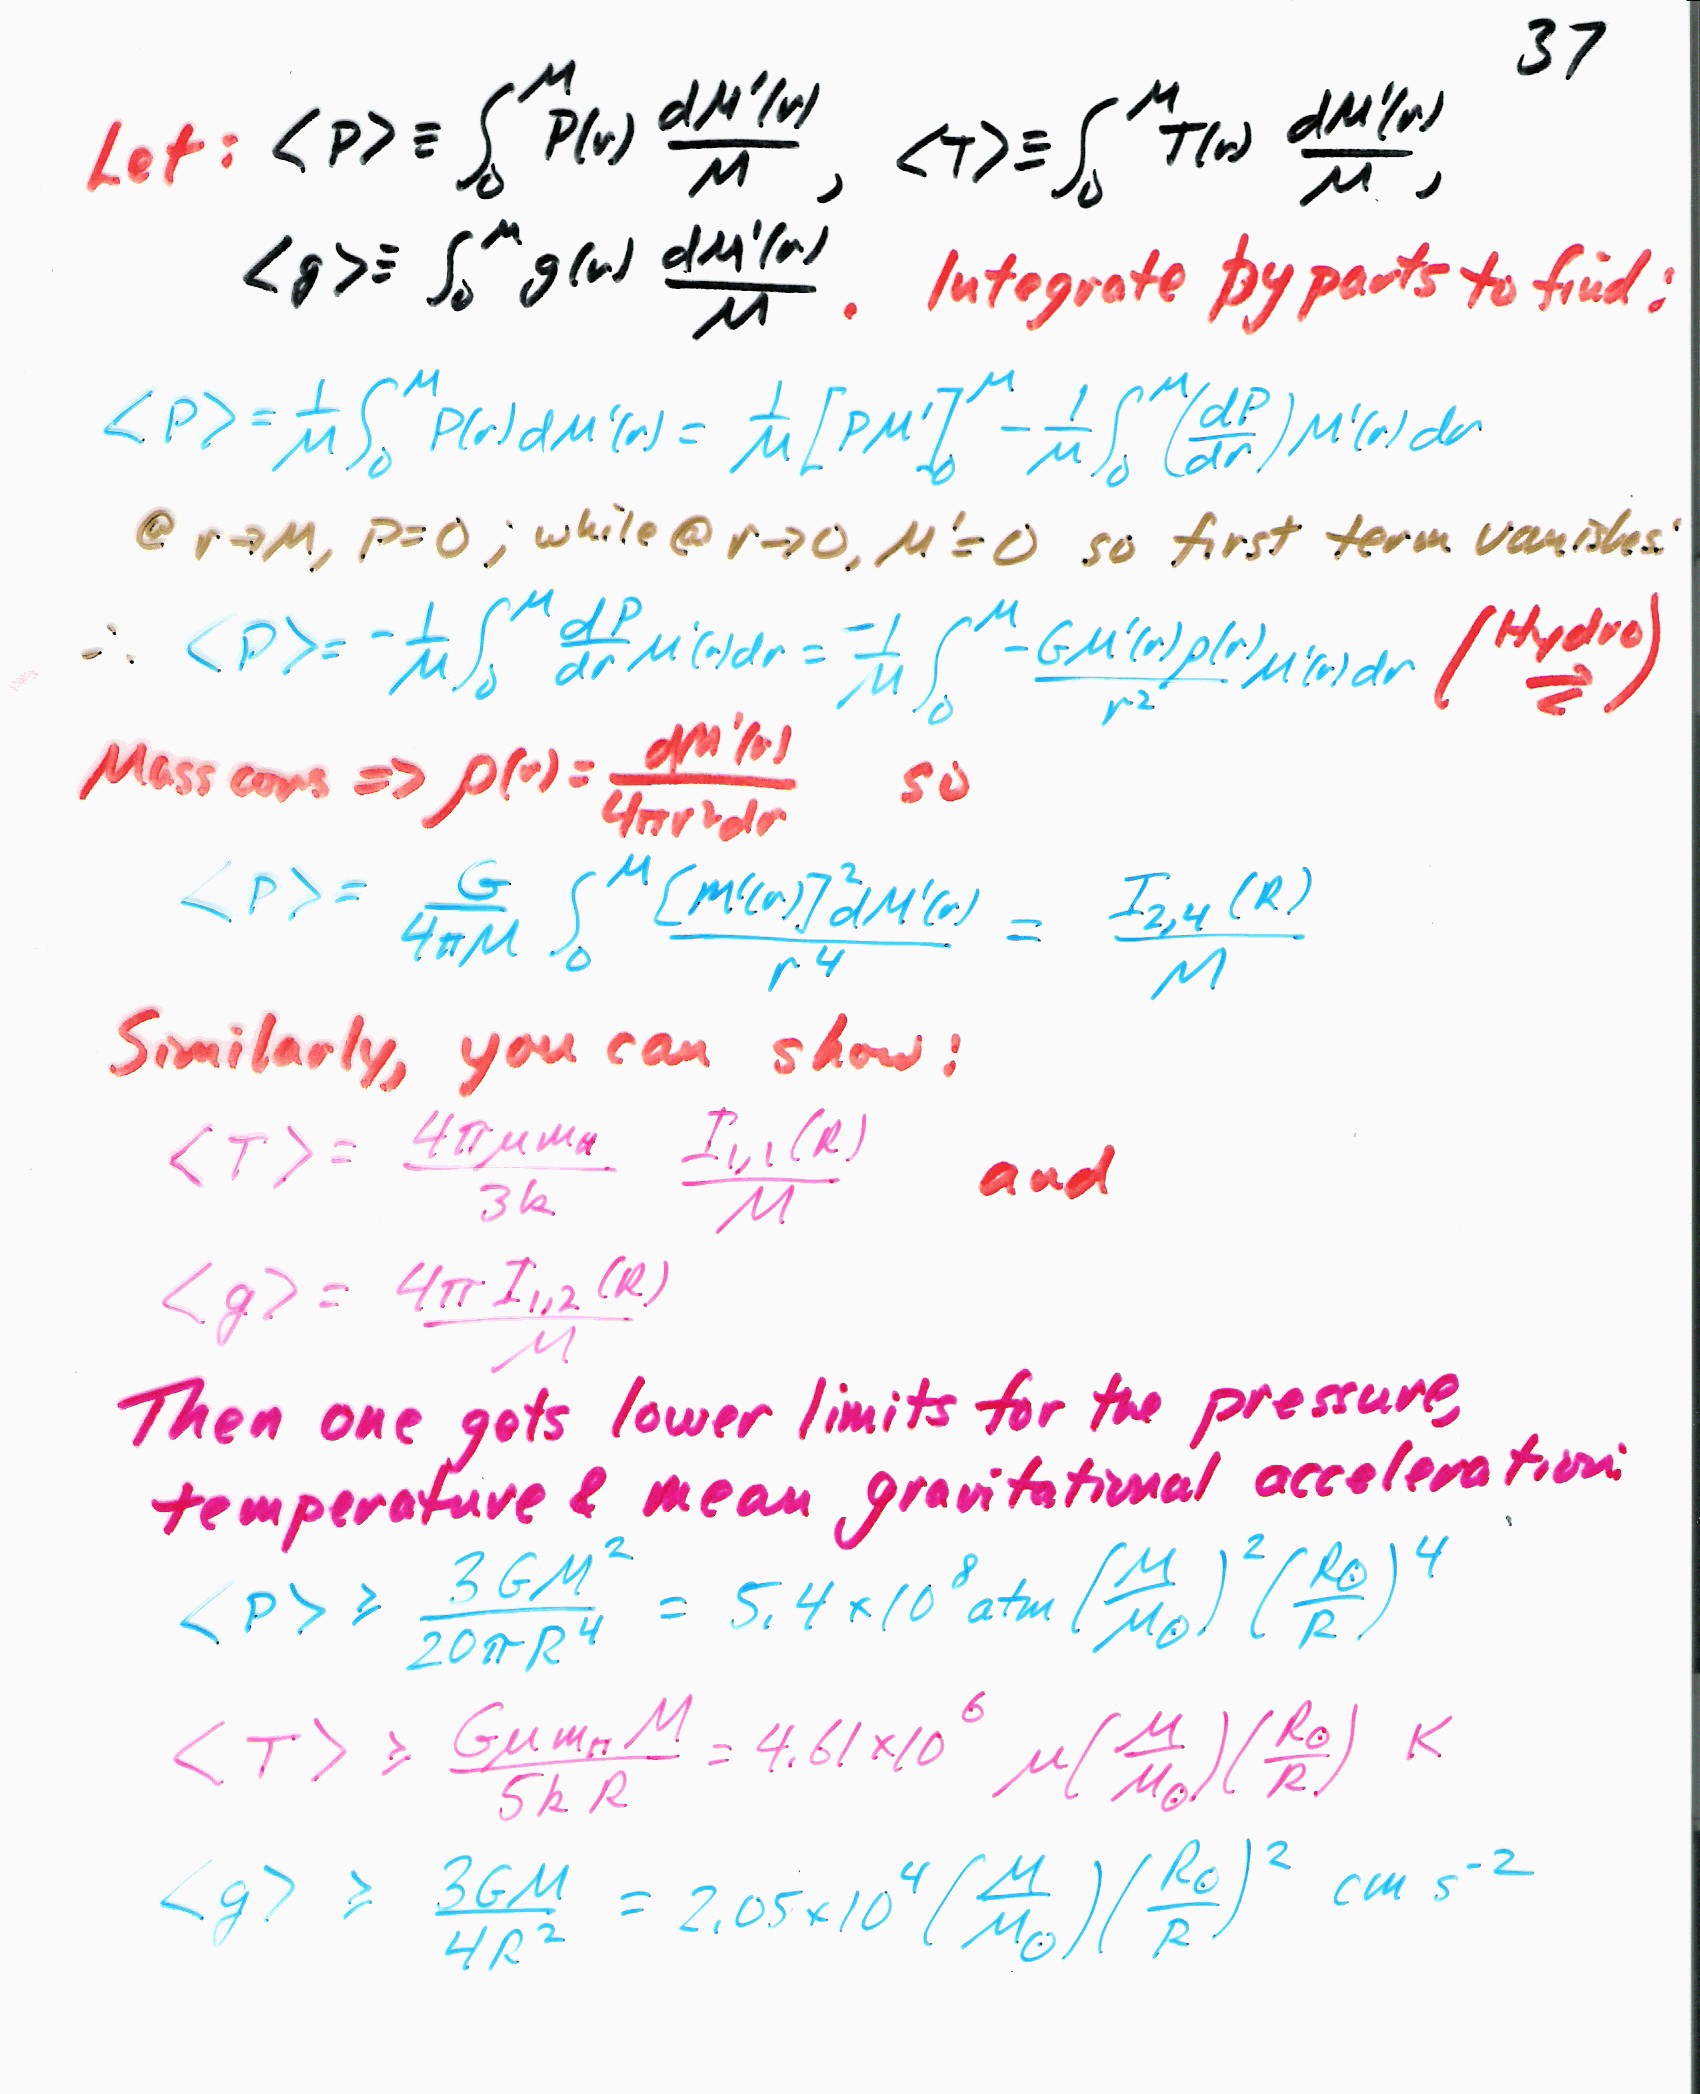 37
Let: <P> ≡ ∫₀ᴹ P(r) dM'(r)/M , <T> ≡ ∫₀ᴹ T(r) dM'(r)/M ,
<g> ≡ ∫₀ᴹ g(r) dM'(r)/M . Integrate by parts to find:
<P> = 1/M ∫₀ᴹ P(r) dM'(r) = 1/M [PM']₀ᴹ - 1/M ∫₀ᴹ (dP/dr) M'(r) dr
@ r→M, P=0; while @ r→0, M'=0 so first term vanishes:
∴ <P> = -1/M ∫₀ᴹ dP/dr M'(r)dr = -1/M ∫₀ᴹ -GM'(r)ρ(r)/r² M'(r)dr (Hydro =)
Mass cons => ρ(r) = dM'(r)/4πr²dr so
<P> = G/4πM ∫₀ᴹ [M'(r)]²dM'(r)/r⁴ = I₂,₄(R)/M
Similarly, you can show:
<T> = 4πμmH/3k I₁,₁(R)/M and
<g> = 4π I₁,₂(R)/M
Then one gets lower limits for the pressure,
temperature & mean gravitational acceleration:
<P> ≥ 3GM²/20πR⁴ = 5.4×10⁸ atm (M/M⊙)²(R⊙/R)⁴
<T> ≥ GμmHM/5kR = 4.61×10⁶ μ(M/M⊙)(R⊙/R) K
<g> ≥ 3GM/4R² = 2.05×10⁴ (M/M⊙)(R⊙/R)² cm s⁻²